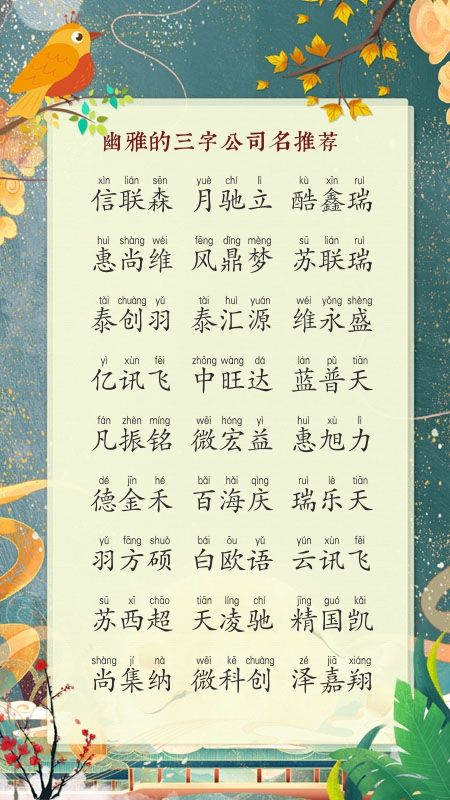 幽雅的三字公司名推荐
xìn lián sēn yuè chí lì kù xīn ruì
信联森 月驰立 酷鑫瑞
huì shàng wéi fēng dǐng mèng sū lián ruì
惠尚维 风鼎梦 苏联瑞
tài chuàng yǔ tài huì yuán wéi yǒng shèng
泰创羽 泰汇源 维永盛
yì xùn fēi zhōng wàng dá lán pǔ tiān
亿讯飞 中旺达 蓝普天
fán zhèn míng wēi hóng yì huì xù lì
凡振铭 微宏益 惠旭力
dé jīn hé bǎi hǎi qìng ruì lè tiān
德金禾 百海庆 瑞乐天
yǔ fāng shuò bái ōu yǔ yún xùn fēi
羽方硕 白欧语 云讯飞
sū xī chāo tiān líng chí jīng guó kǎi
苏西超 天凌驰 精国凯
shàng jí nà wēi kē chuàng zé jiā xiáng
尚集纳 微科创 泽嘉翔